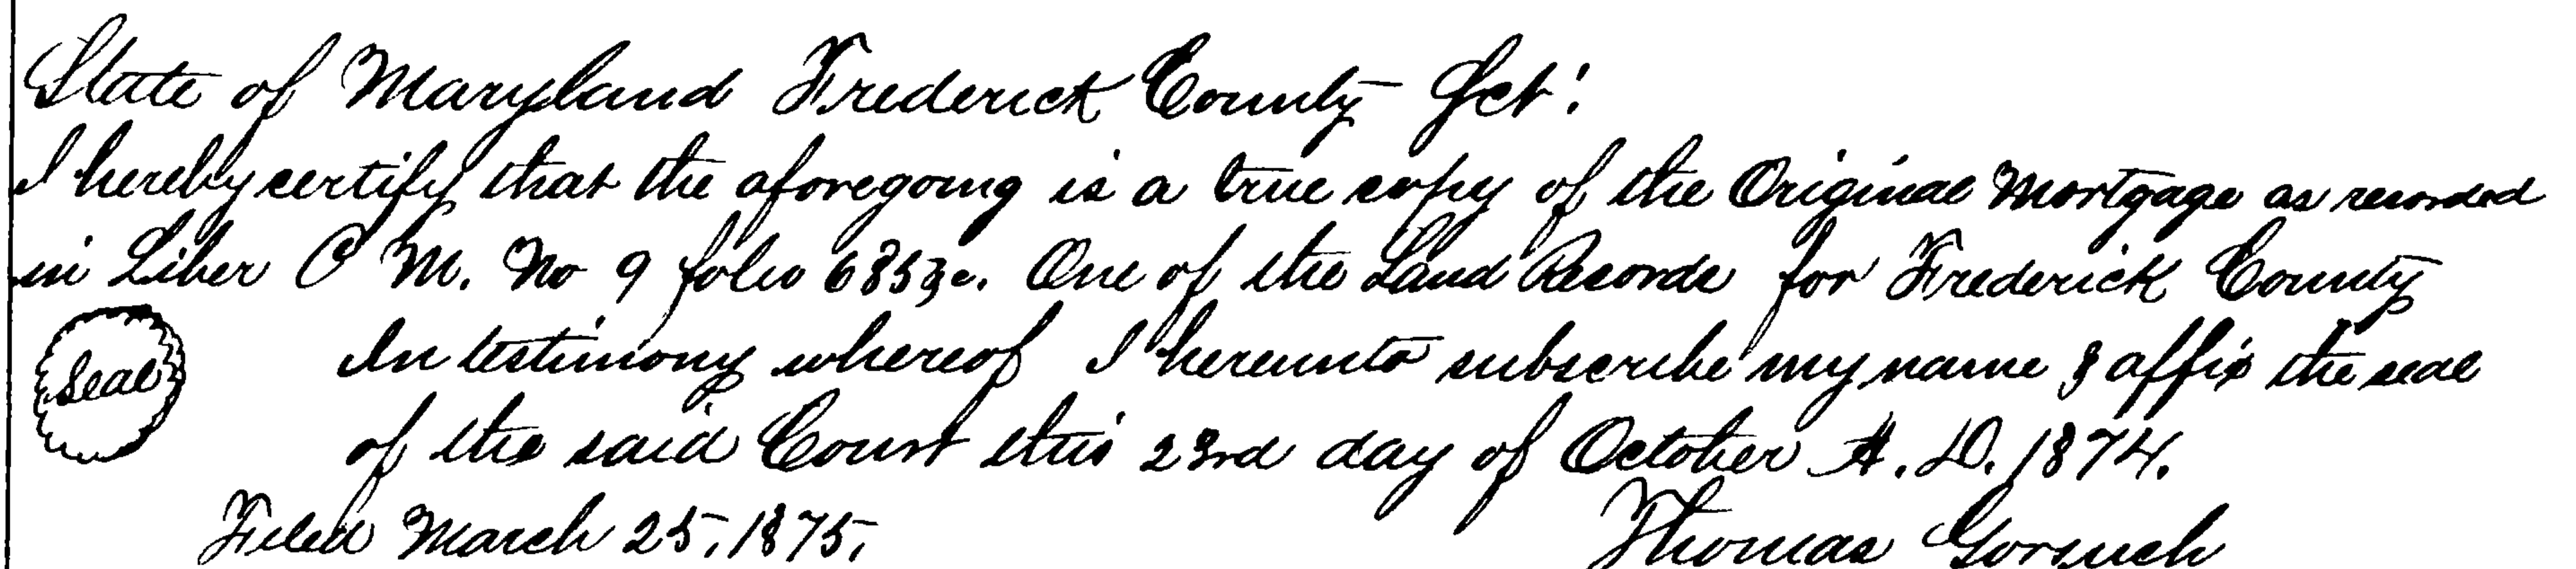 State of Maryland Frederick County Sct:
I hereby certify that the aforegoing is a true copy of the Original Mortgage as recorded
in Liber C M. No 9 folio 685 &c. One of the Land Records for Frederick County
Seal In testimony whereof I hereunto subscribe my name & affix the seal
of the said Court this 23rd day of October A. D. 1874.
Filed March 25, 1875, Thomas Gorsuch